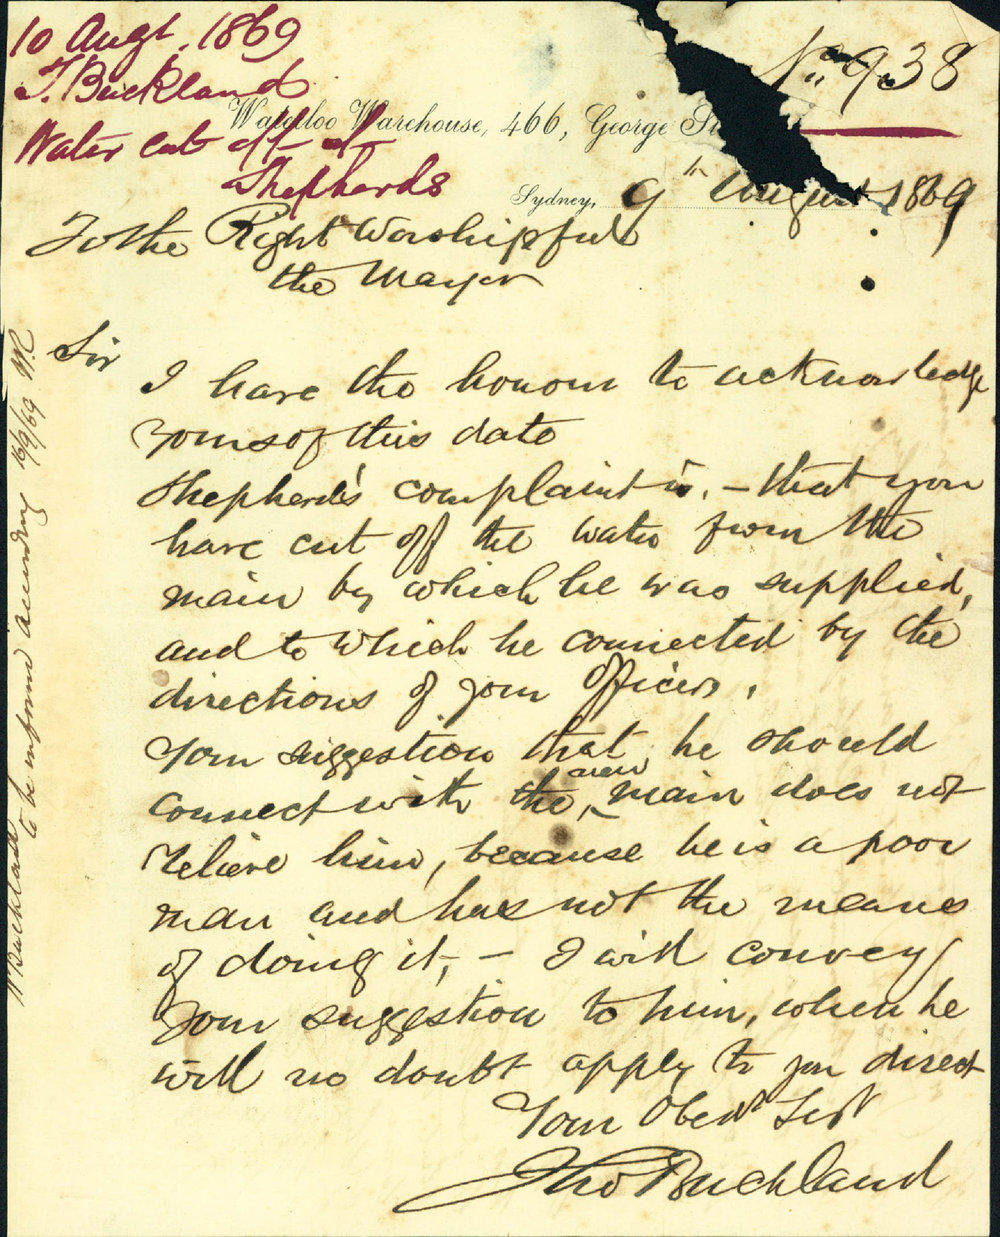 10 Augt. 1869
T. Buckland
Water cut off at
Shepherds
No. 938
Waterloo Warehouse, 466, George
Sydney, 9th August 1869
To the Right Worshipful
the Mayor
Sir
I have the honour to acknowledge
yours of this date
Shepherd's complaint is, - that you
have cut off the water from the
main by which he was supplied,
and to which he connected by the
directions of your Officers.
Your suggestion that he should
connect with the new main does not
relieve him, because he is a poor
man and has not the means
of doing it, - I will convey
your suggestion to him, when he
will no doubt apply to you direct
Your Obedt Servt
Thos Buckland
Buckland
to be informd according 16/9/69